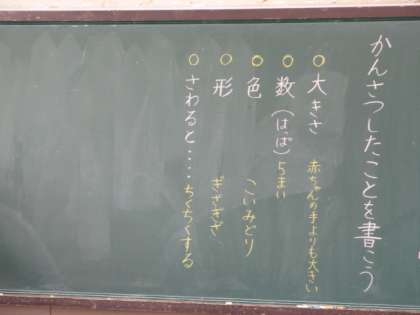 かんさつしたことを書こう
○大きさ 赤ちゃんの手よりも大きい
○数(はっぱ)5まい
○色 こいみどり
○形 ぎざぎざ
○さわると・・・・ちくちくする